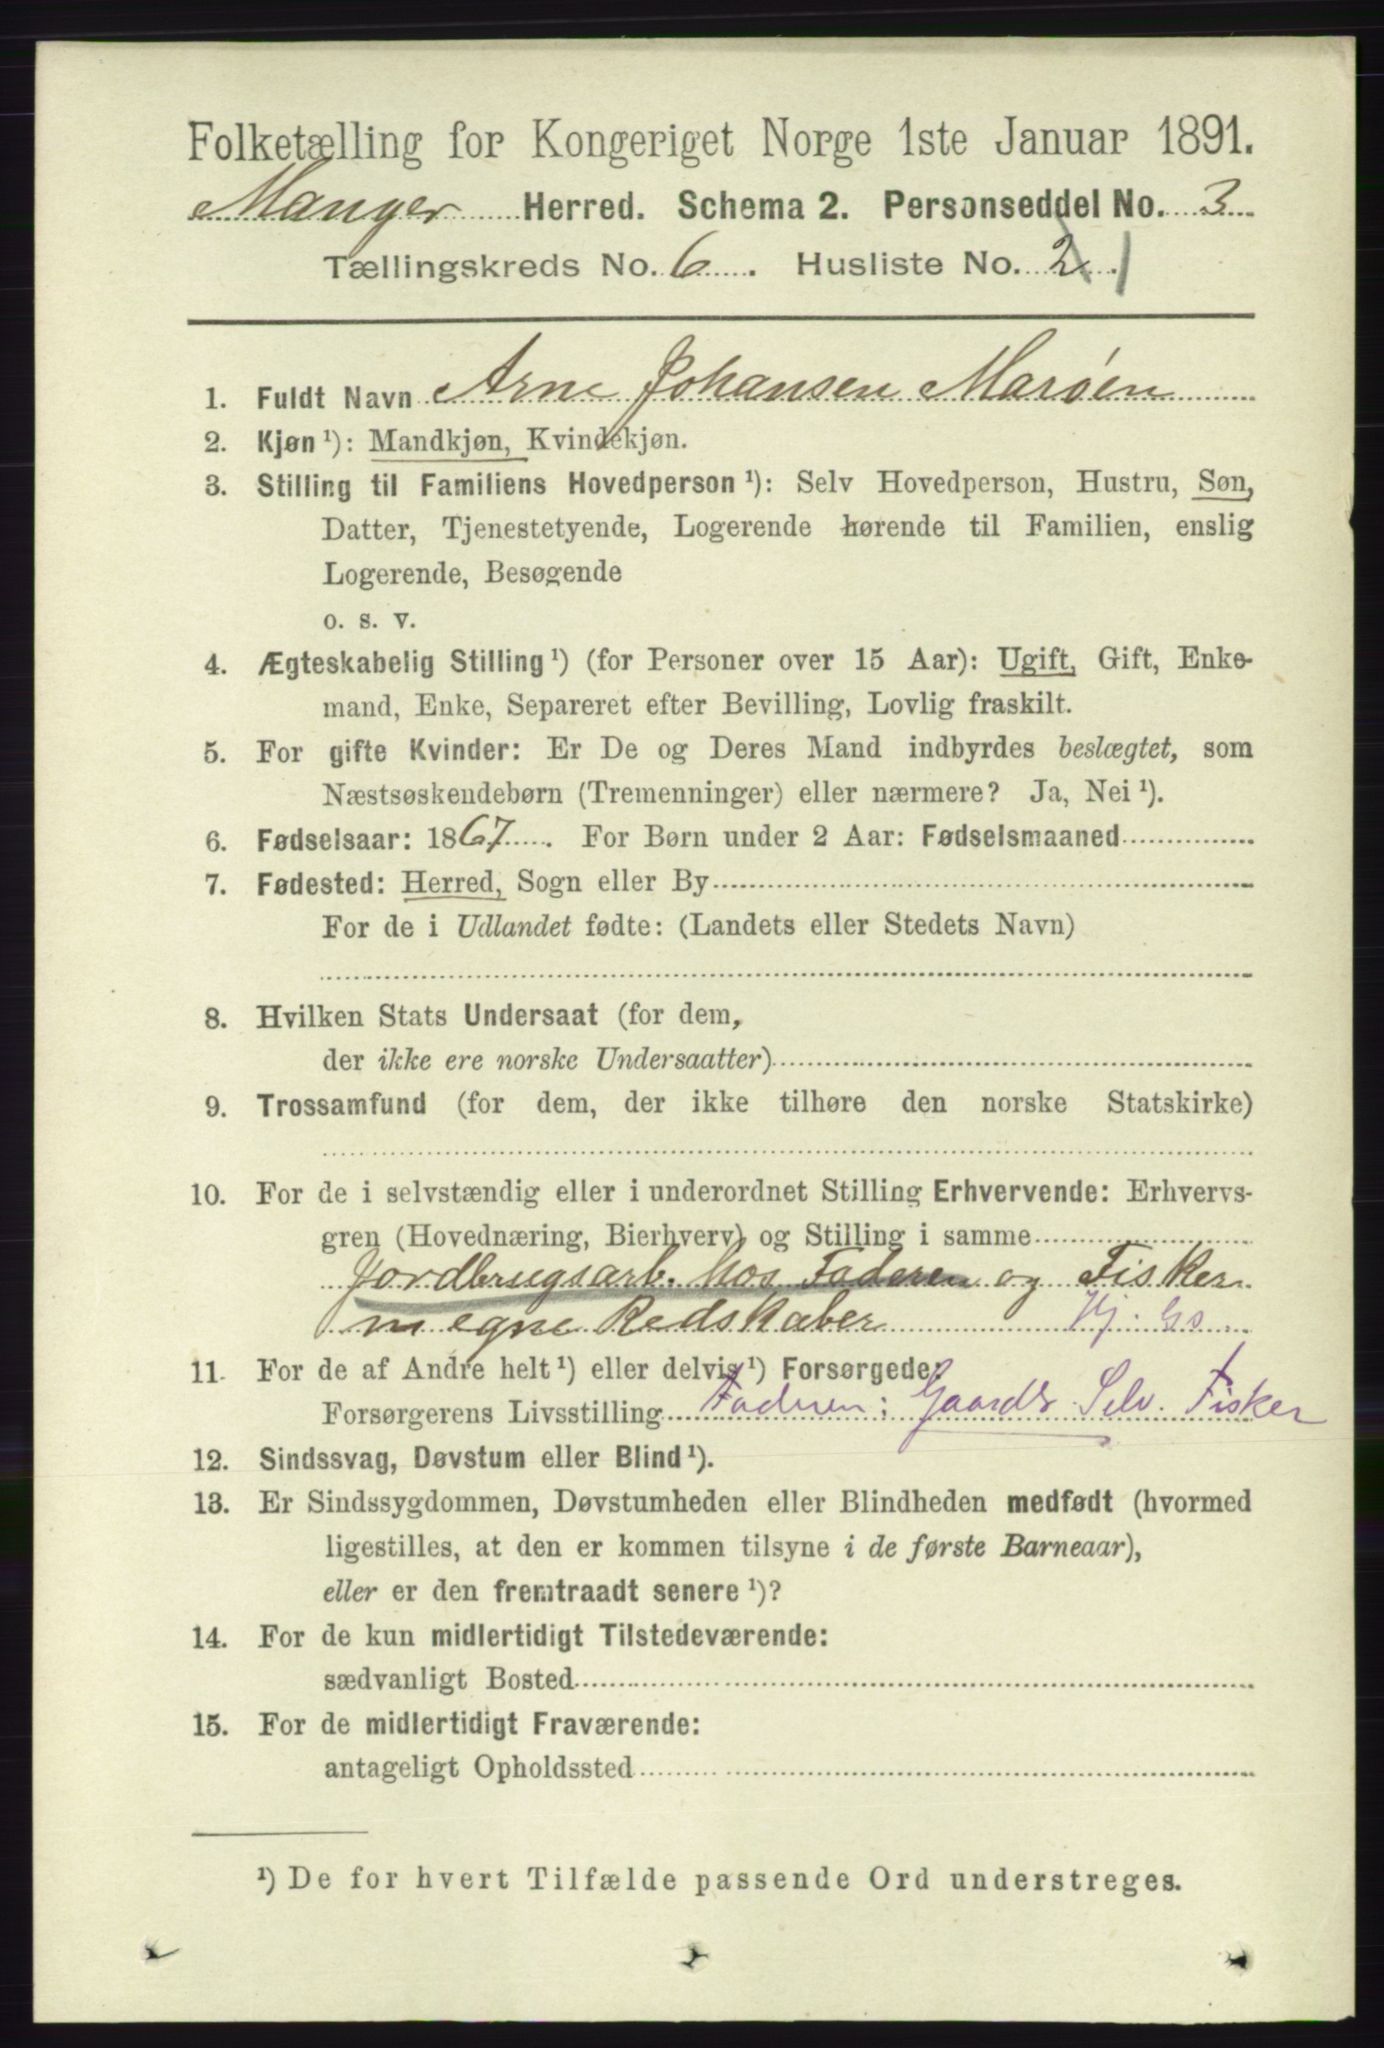 Folketælling for Kongeriget Norge 1ste Januar 1891.
Manger Herred. Schema 2. Personseddel No. 3
Tællingskreds No. 6. Husliste No. 2. 1
1. Fuldt Navn Arne Johansen Marøen
2. Kjøn¹): Mandkjøn, Kvindekjøn.
3. Stilling til Familiens Hovedperson¹): Selv Hovedperson, Hustru, Søn,
Datter, Tjenestetyende, Logerende hørende til Familien, enslig
Logerende, Besøgende
o. s. v.
4. Ægteskabelig Stilling¹) (for Personer over 15 Aar): Ugift, Gift, Enke-
mand, Enke, Separeret efter Bevilling, Lovlig fraskilt.
5. For gifte Kvinder: Er De og Deres Mand indbyrdes beslægtet, som
Næstsøskendebørn (Tremenninger) eller nærmere? Ja, Nei¹).
6. Fødselsaar: 1867. For Børn under 2 Aar: Fødselsmaaned
7. Fødested: Herred, Sogn eller By
For de i Udlandet fødte: (Landets eller Stedets Navn)
8. Hvilken Stats Undersaat (for dem,
der ikke ere norske Undersaatter)
9. Trossamfund (for dem, der ikke tilhøre den norske Statskirke)
10. For de i selvstændig eller i underordnet Stilling Erhvervende: Erhvervs-
gren (Hovednæring, Bierhverv) og Stilling i samme
Jordbrugsarb. hos Faderen og Fisker
m egne Redskaber Hj. Gs
11. For de af Andre helt¹) eller delvis¹) Forsørgede:
Forsørgerens Livsstilling Faderen: Gaardb Selv. Fisker
12. Sindssvag, Døvstum eller Blind¹).
13. Er Sindssygdommen, Døvstumheden eller Blindheden medfødt (hvormed
ligestilles, at den er kommen tilsyne i de første Barneaar),
eller er den fremtraadt senere¹)?
14. For de kun midlertidigt Tilstedeværende:
sædvanligt Bosted
15. For de midlertidigt Fraværende:
antageligt Opholdssted
¹) De for hvert Tilfælde passende Ord understreges.